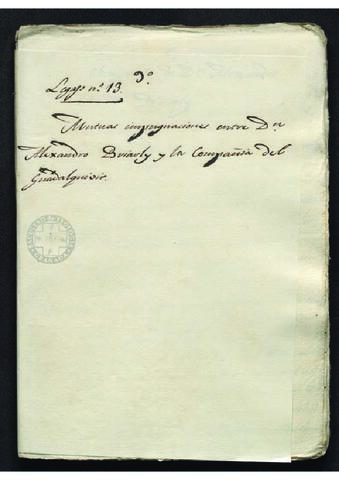 3º
Legajo nº 13.
Mutuas impugnaciones entre Dn
Alexandro Briarly y la Compañia del
Guadalquivir.